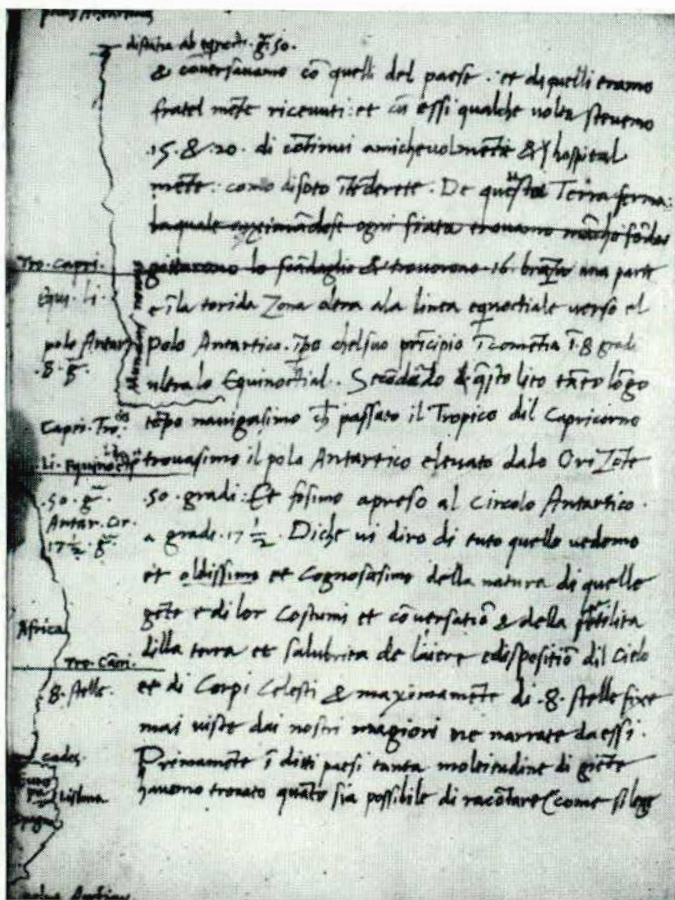 distātia ab egnoctii. gr̄. 50.
& cōversavamo cō quelli del paese. et da quelli eramo
fratel mēte ricevuti: et cū essi qualche volta stevemo
.15. & .20. di cōtinui amichevolmēte & hospital
mēte: como disoto ītēderete. De questa Terra ferma:
laquale ogni fiata trovavo mancho fondo
gittarono lo scādaglio & trovorono .16. braza una parte
e ī la torida Zona oltra ala linea eqnoctiale verso el
Polo Antartico. īpo chel suo prīcipio īcomētia ī .8. gradi
ultra lo Equinoctial. Secōdādo q̄sto lito tāto lōgo
tēpo navigasimo ch̄ passato il Tropico dil Capricorno
trovasimo il polo Antartico elevato dalo OriZōte
50. gradi: Et fosimo apreso al Circolo Antartico.
a gradi .17 1/2. Diche vi diro di tuto quello vedemo
et oldissimo et Cognosasimo della natura di quelle
gēte e di lor Costumi et cōversatiō & della fertilita
dilla terra et salubrita de laiere e dispositiō dil Cielo
et di Corpi Celesti & maximamēte di .8. stelle fixe
mai viste dai nostri magiori ne narrate da essi.
Primamēte ī ditti paesi tanta moltitudine di giēte
havemo trovato quāto sia possibile di racōtare (come si lege
Tro. Capri.
Equi. Li.
polo Antar
.8. gr̄.
Mundus novus
Capri. Tro.
Li. Equinoctii
.50. gr̄
Antar. Cir.
17 1/2. gr̄
Africa
Tro. Cācri.
8. stelle.
cades
Lisbona